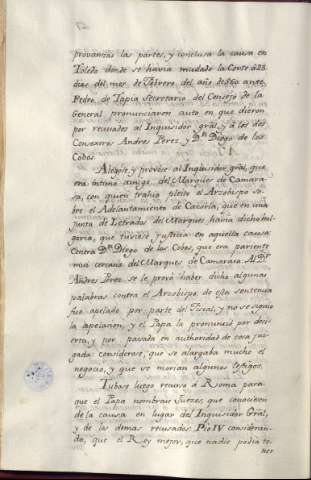 provanzas las partes, y conclusa la causa en
Toledo donde se havia mudado la Corte á 28
dias del mes de Febrero del año de 560 ante
Pedro de Tapia Secretario del Consejo de la
General pronunciaron auto en que dieron
por recusados al Inquisidor gral, y á los dos
Consexeros Andres Perez y Dn Diego de los
Cobos.
Alegose, y provose al Inquisidor gral, que
era intimo amigo del Marques de Camara-
sa, con quien trahia pleito el Arzobispo so-
bre el Adelantamiento de Cazorla, que en una
junta de Letrados del Marques havia dicho
que tuviese justicia en aquella causa:
Contra Dn Diego de los Cobos, que era pariente
muy cercano del Marques de Camarasa. Al Dr
Andres Perez se le provó haber dicho algunas
palabras contra el Arzobispo: de esta sentencia
fué apelado por parte del Fiscal, y no se siguió
la apelacion, y el Papa la pronunció por desi-
erta, y por pasada en authoridad de cosa juz-
gada: considerase, que se alargaba mucho el
negocio, y que se morian algunos testigos.
Tubose luego recurso á Roma para
que el Papa nombrase Juezes, que conociesen
de la causa en lugar del Inquisidor Gral,
y de los demas recusados. Pio IV consideran-
do, que el Rey mejor, que nadie podia te-
ner